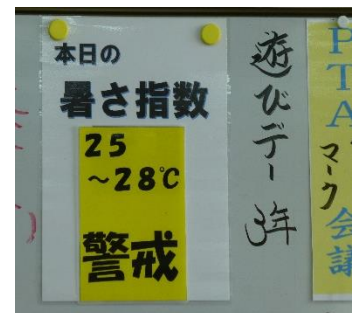 本日の
暑さ指数
25
～28℃
警戒
遊びデー 3年
PTA
マーク
会議